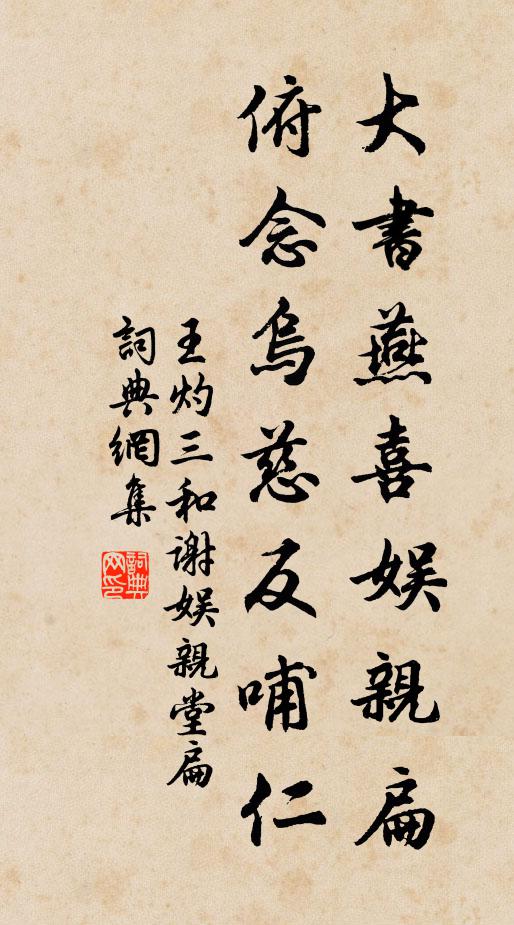 大書燕喜娛親扁
俯念烏慈反哺仁
王灼三和谢娛親堂扁
詞典網集
詞典網印